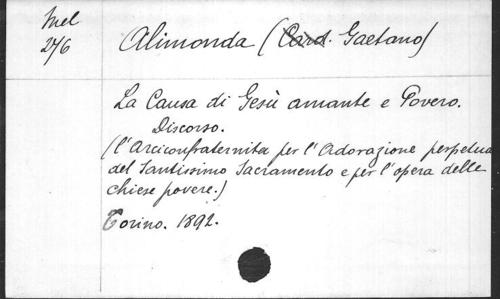 Mel
276
Alimonda (Card. Gaetano)
La Causa di Gesù amante e Povero.
Discorso.
(l'Arciconfraternita per l'Adorazione perpetua
del Santissimo Sacramento e per l'opera delle
chiese povere.)
Torino. 1892.